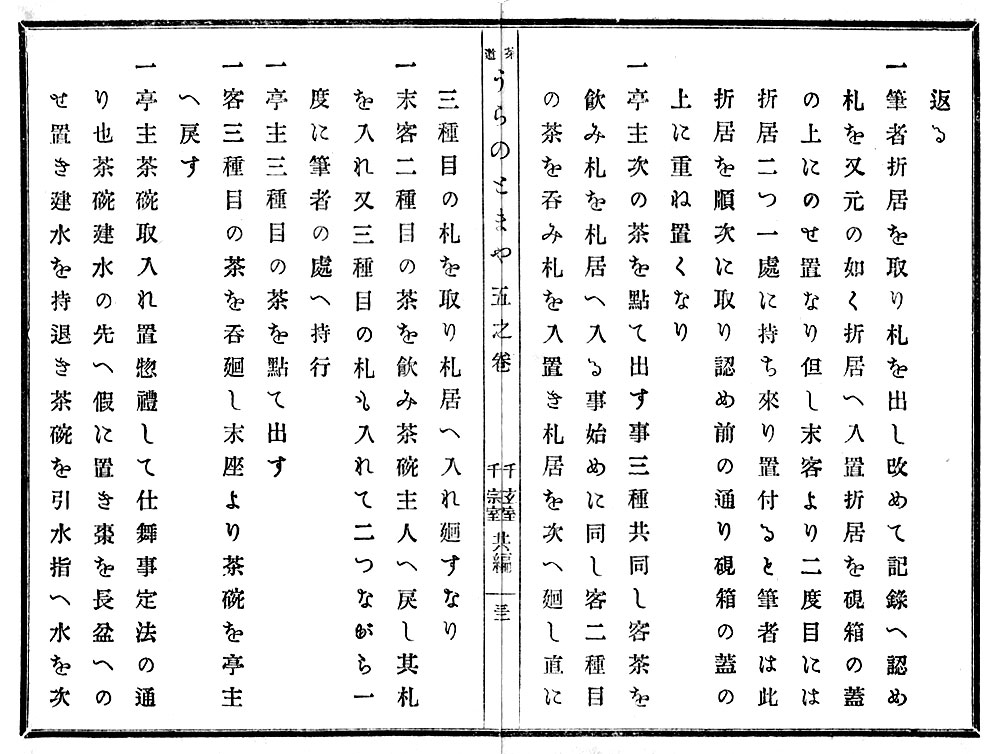 返る
一筆者折居を取り札を出し改めて記錄へ認め
札を又元の如く折居へ入置折居を硯箱の蓋
の上にのせ置なり但し末客より二度目には
折居二つ一處に持ち來り置付ると筆者は此
折居を順次に取り認め前の通り硯箱の蓋の
上に重ね置くなり
一亭主次の茶を點て出す事三種共同し客茶を
飮み札を札居へ入る事始めに同し客二種目
の茶を呑み札を入置き札居を次へ廻し直に
茶道 うらのとまや 五之卷 千玄室 千宗室 共編
三種目の札を取り札居へ入れ廻すなり
一末客二種目の茶を飮み茶碗主人へ戻し其札
を入れ又三種目の札も入れて二つながら一
度に筆者の處へ持行
一亭主三種目の茶を點て出す
一客三種目の茶を呑廻し末座より茶碗を亭主
へ戻す
一亭主茶碗取入れ置惣禮して仕舞事定法の通
り也茶碗建水の先へ假に置き棗を長盆への
せ置き建水を持退き茶碗を引水指へ水を次